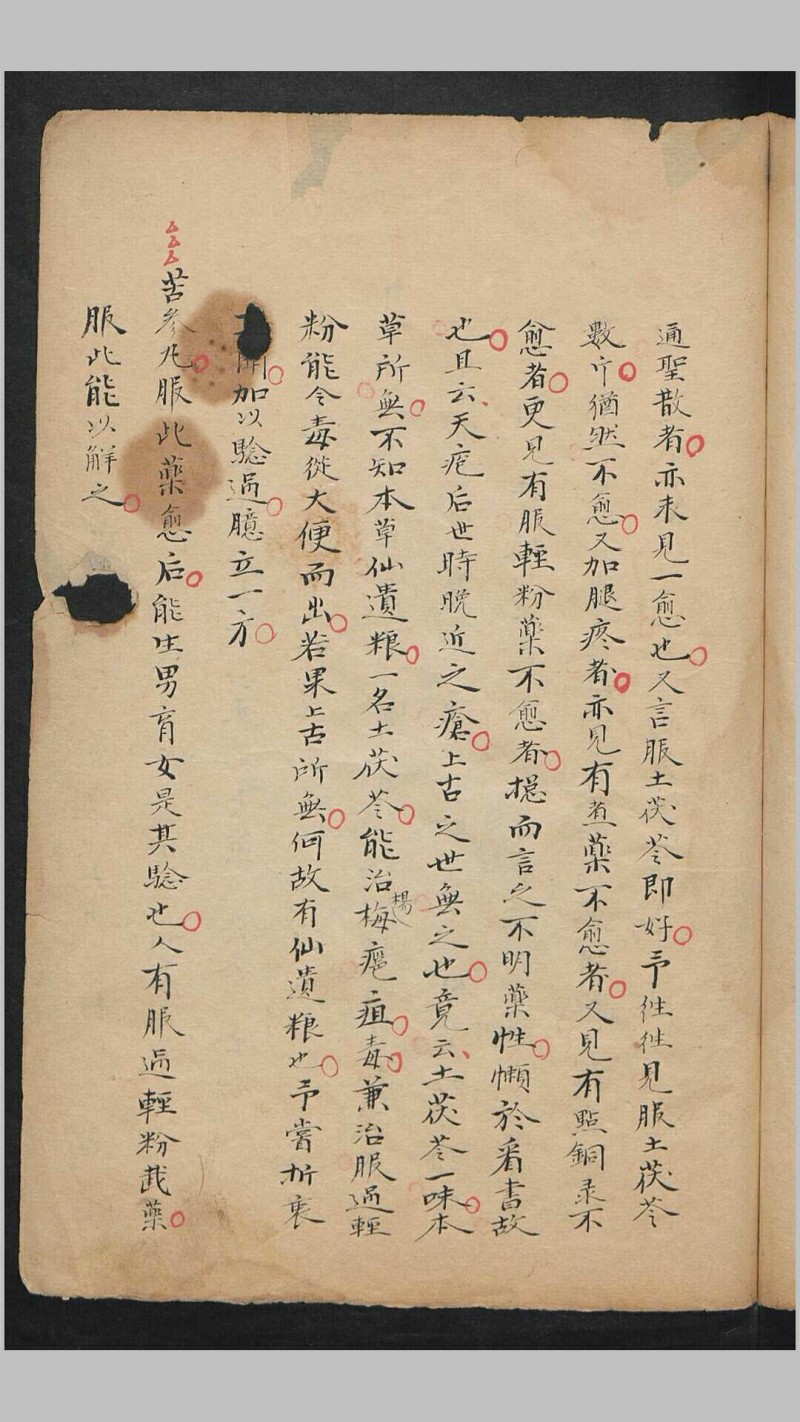 通聖散者亦未見一愈也又言服土茯苓即好予徃徃見服土茯苓
數斤猶然不愈又加腿疼者亦見有煮藥不愈者又見有點銅录不
愈者更見有服輕粉藥不愈者揔而言之不明藥性懶於看書故
也且云天疱后世時晚近之瘡上古之世無之也竟云土茯苓一味本
草所無不知本草仙遺粮一名土茯苓能治楊梅瘡疽毒兼治服過輕
粉能令毒從大便而出若果上古所無何故有仙遺粮也予嘗折衷
開加以驗過臆立一方
苦參丸服此藥愈后能生男育女是其驗也人有服過輕粉戢藥
服此能以解之